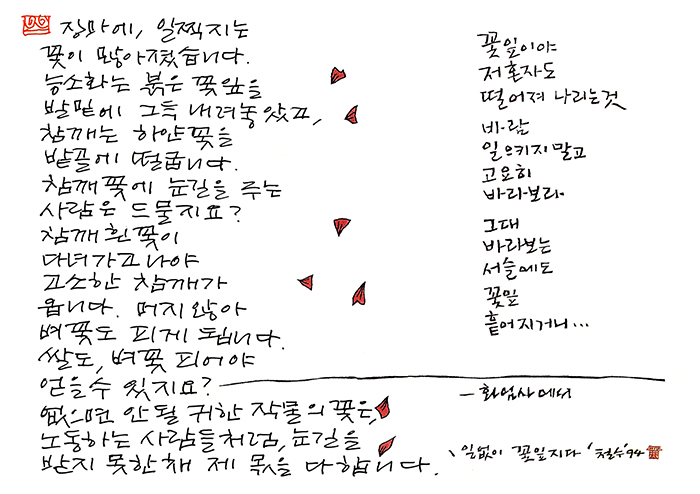 장마에, 일찍지는
꽃이 많아졌습니다.
능소화는 붉은 꽃잎을
발밑에 그득 내려놓았고,
참깨는 하얀꽃을
밭골에 떨굽니다.
참깨꽃에 눈길을 주는
사람은 드물지요?
참깨 흰꽃이
다녀가고나야
고소한 참깨가
옵니다. 머지않아
벼꽃도 피게 됩니다.
쌀도, 벼꽃 피어야
얻을수 있지요?
없으면 안될 귀한 작물의 꽃은,
노동하는 사람들처럼, 눈길을
받지 못한채 제 몫을 다합니다.
꽃잎이야
저혼자도
떨어져 나리는것
바람
일으키지말고
고요히
바라보라
그대
바라보는
서슬에도
꽃잎
흩어지거니...
- 화엄사에서
일없이 꽃잎지다 '철수'94